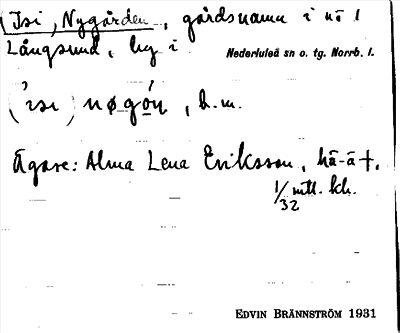 (Isi, Nygården, gårdsnamn i nö 1
Långsund, by i Nederluleå sn o. tg. Norrb. l.
(ísi) nøgóṇ, b. m.
Ägare: Alma Lena Eriksson, hä-ä†.
1/32 mtl. kh.
EDVIN BRÄNNSTRÖM 1931